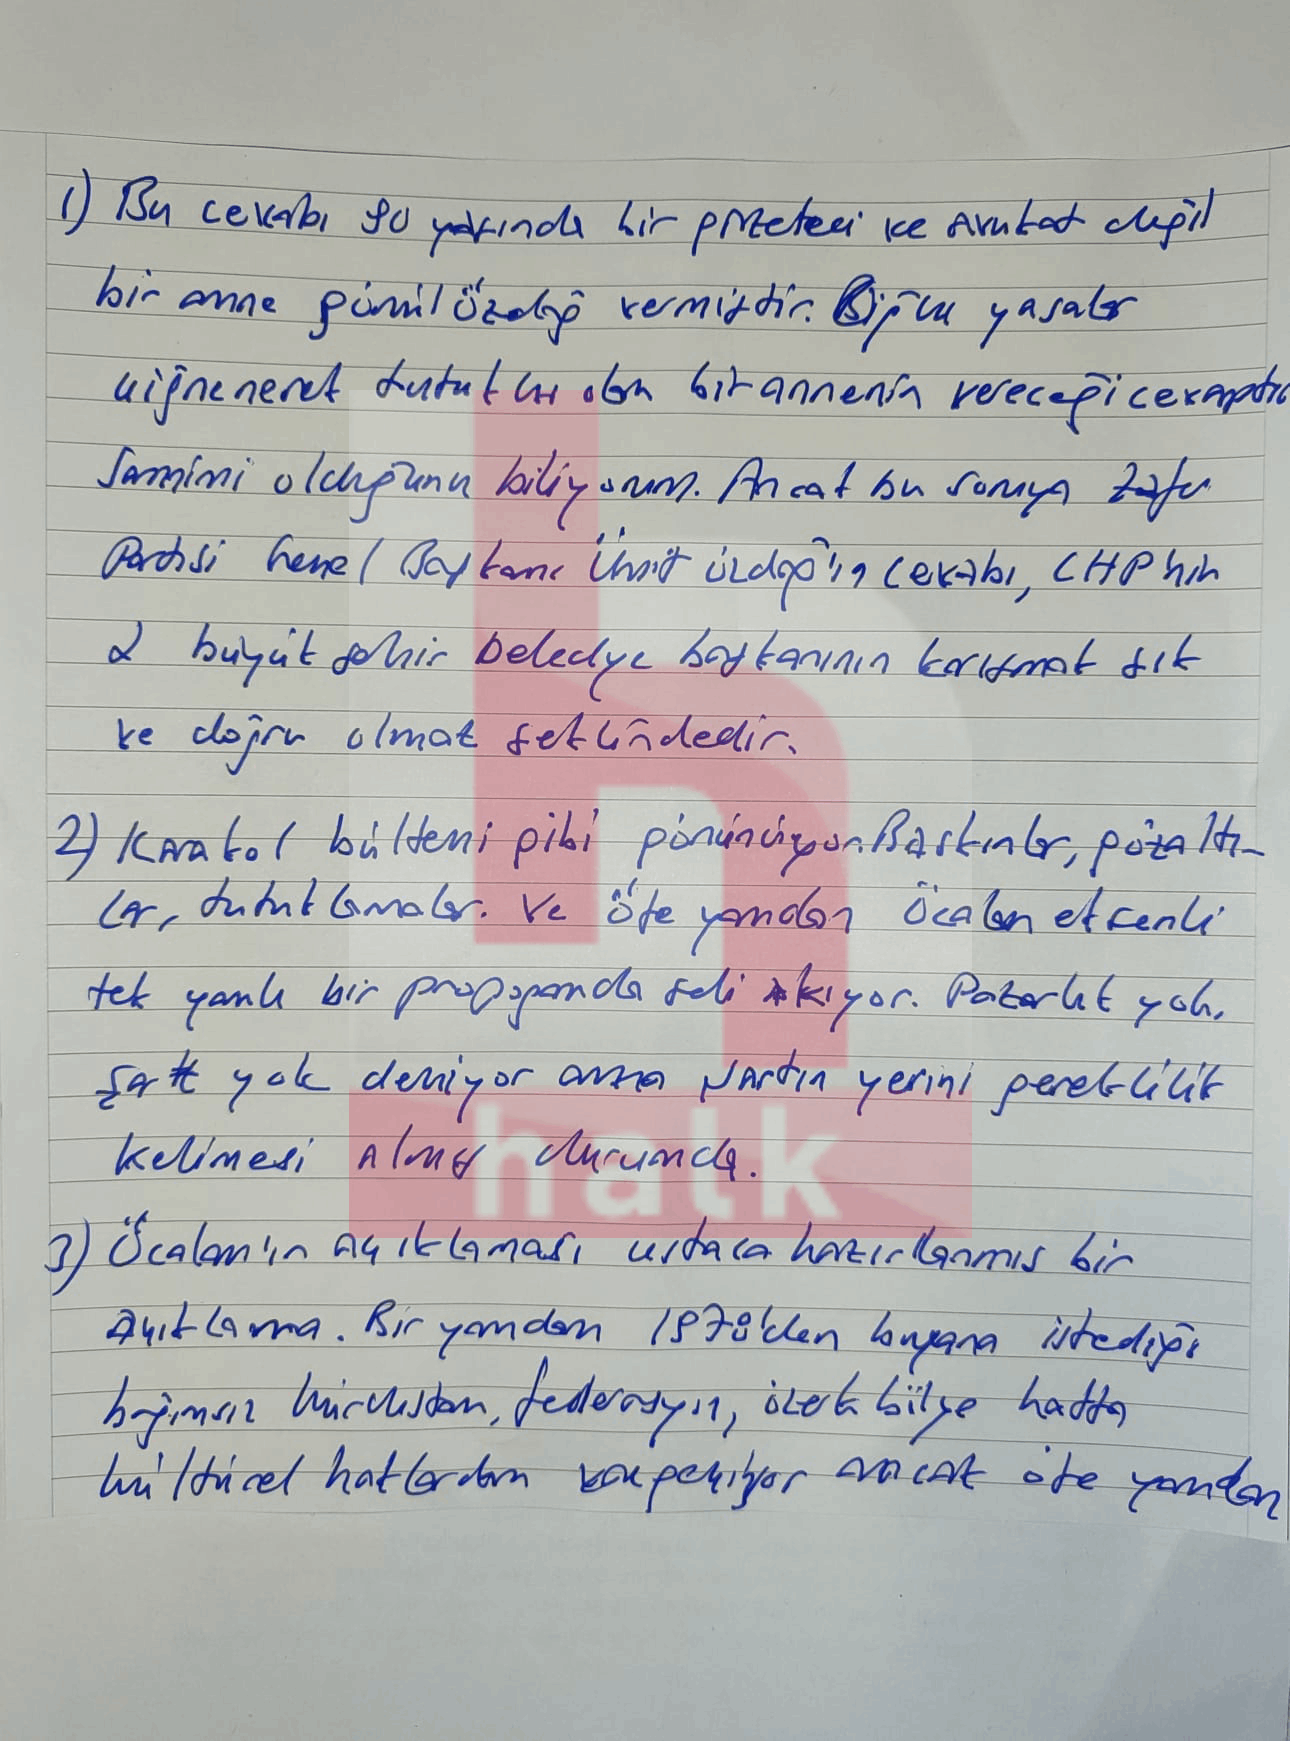 1) Bu cevabı 90 yaşında bir gazeteci ve avukat değil
bir anne Gönül Özdağ vermiştir. Oğlu yasalar
çiğnenerek tutuklu olan bir annenin vereceği cevaptır
Samimi olduğunu biliyorum. Ancak bu soruya Zafer
Partisi Genel Başkanı Ümit Özdağ'ın cevabı, CHP'nin
2 büyükşehir belediye başkanının karışmak şık
ve doğru olmaz şeklindedir.
2) Karakol bülteni gibi görünüyor. Baskınlar, gözaltı-
lar, tutuklamalar. Ve öte yandan Öcalan eksenli
tek yanlı bir propaganda seli akıyor. Pazarlık yok,
şart yok deniyor ama şartın yerini gereklilik
kelimesi almış durumda.
3) Öcalan'ın açıklaması ustaca hazırlanmış bir
açıklama. Bir yandan 1978'den buyana istediği
bağımsız Kürdistan, federasyon, özerk bölge hatta
kültürel haklardan vazgeçiyor ancak öte yandan
h
halk